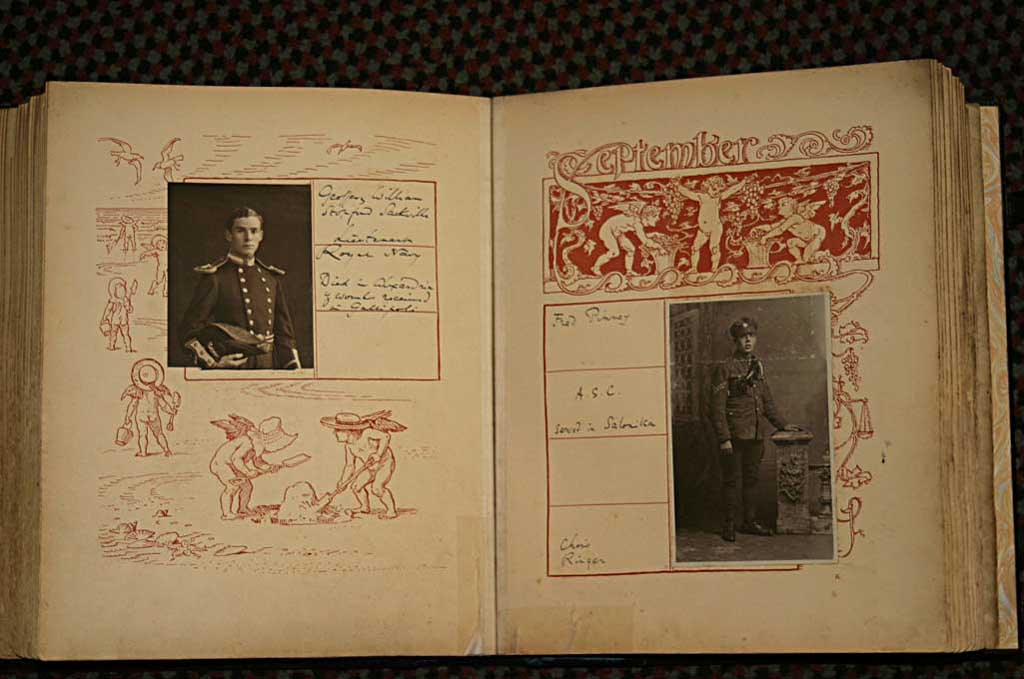 Geoffrey William
Stopford Sackville
Lieutenant
Royal Navy
Died in Alexandria
of wounds received
in Gallipoli
September
Fred Pinney
A.S.C.
served in Salonika
Chris
Ringer